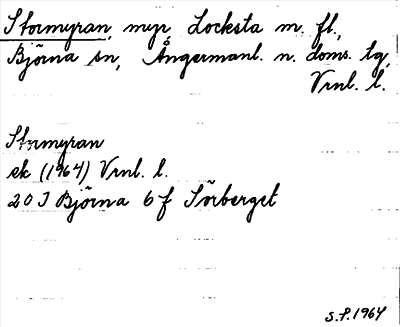 Stormyran, myr, Locksta m. fl.,
Björna sn, Ångermanl. n. doms. tg,
Vrnl. l.
Stormyran
ek (1964) Vrnl. l.
20 J Björna 6 f Sörberget
S.P. 1964